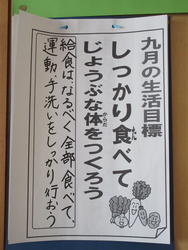 九月の生活目標
しっかり食べて
じょうぶな体をつくろう
給食はなるべく全部食べて、
運動、手洗いをしっかり行おう